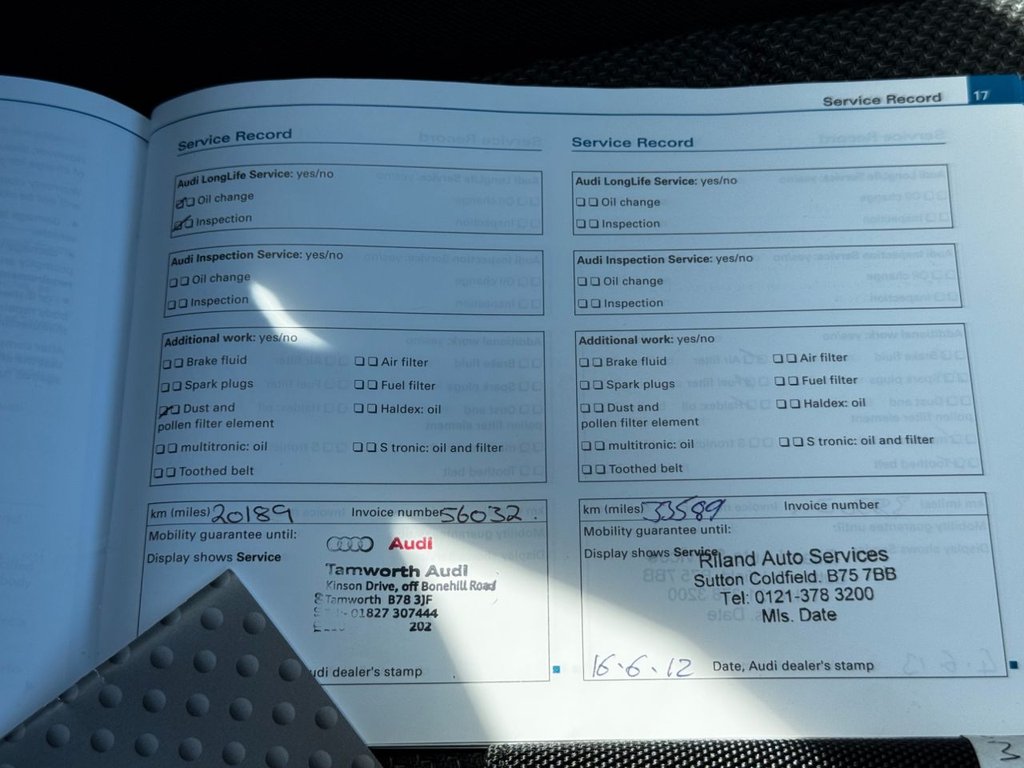 Service Record 17
Service Record
Audi LongLife Service: yes/no
Oil change
Inspection
Audi Inspection Service: yes/no
Oil change
Inspection
Additional work: yes/no
Brake fluid Air filter
Spark plugs Fuel filter
Dust and Haldex: oil
pollen filter element
multitronic: oil S tronic: oil and filter
Toothed belt
km (miles) 20189 Invoice number 56032.
Mobility guarantee until:
Display shows Service
Audi
Tamworth Audi
Kinson Drive, off Bonehill Road
Tamworth B78 3JF
01827 307444
202
udi dealer's stamp
Service Record
Audi LongLife Service: yes/no
Oil change
Inspection
Audi Inspection Service: yes/no
Oil change
Inspection
Additional work: yes/no
Brake fluid Air filter
Spark plugs Fuel filter
Dust and Haldex: oil
pollen filter element
multitronic: oil S tronic: oil and filter
Toothed belt
km (miles) 33589 Invoice number
Mobility guarantee until:
Display shows Service
Riland Auto Services
Sutton Coldfield. B75 7BB
Tel: 0121-378 3200
Mls. Date
16.6.12 Date, Audi dealer's stamp
3